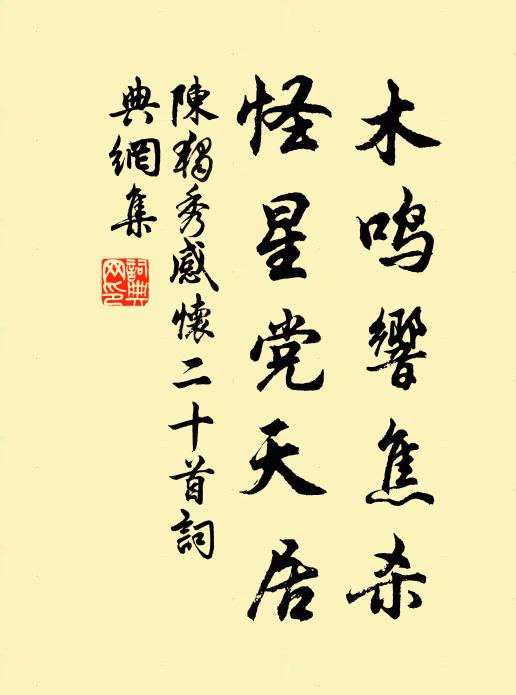 木鸣響焦杀
怪星党天居
陳獨秀感懷二十首詞
典網集
詞典
网印